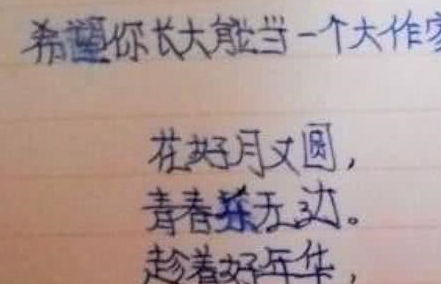 希望你长大能当一个大作家
花好月又圆，
青春乐无边。
趁着好年华，